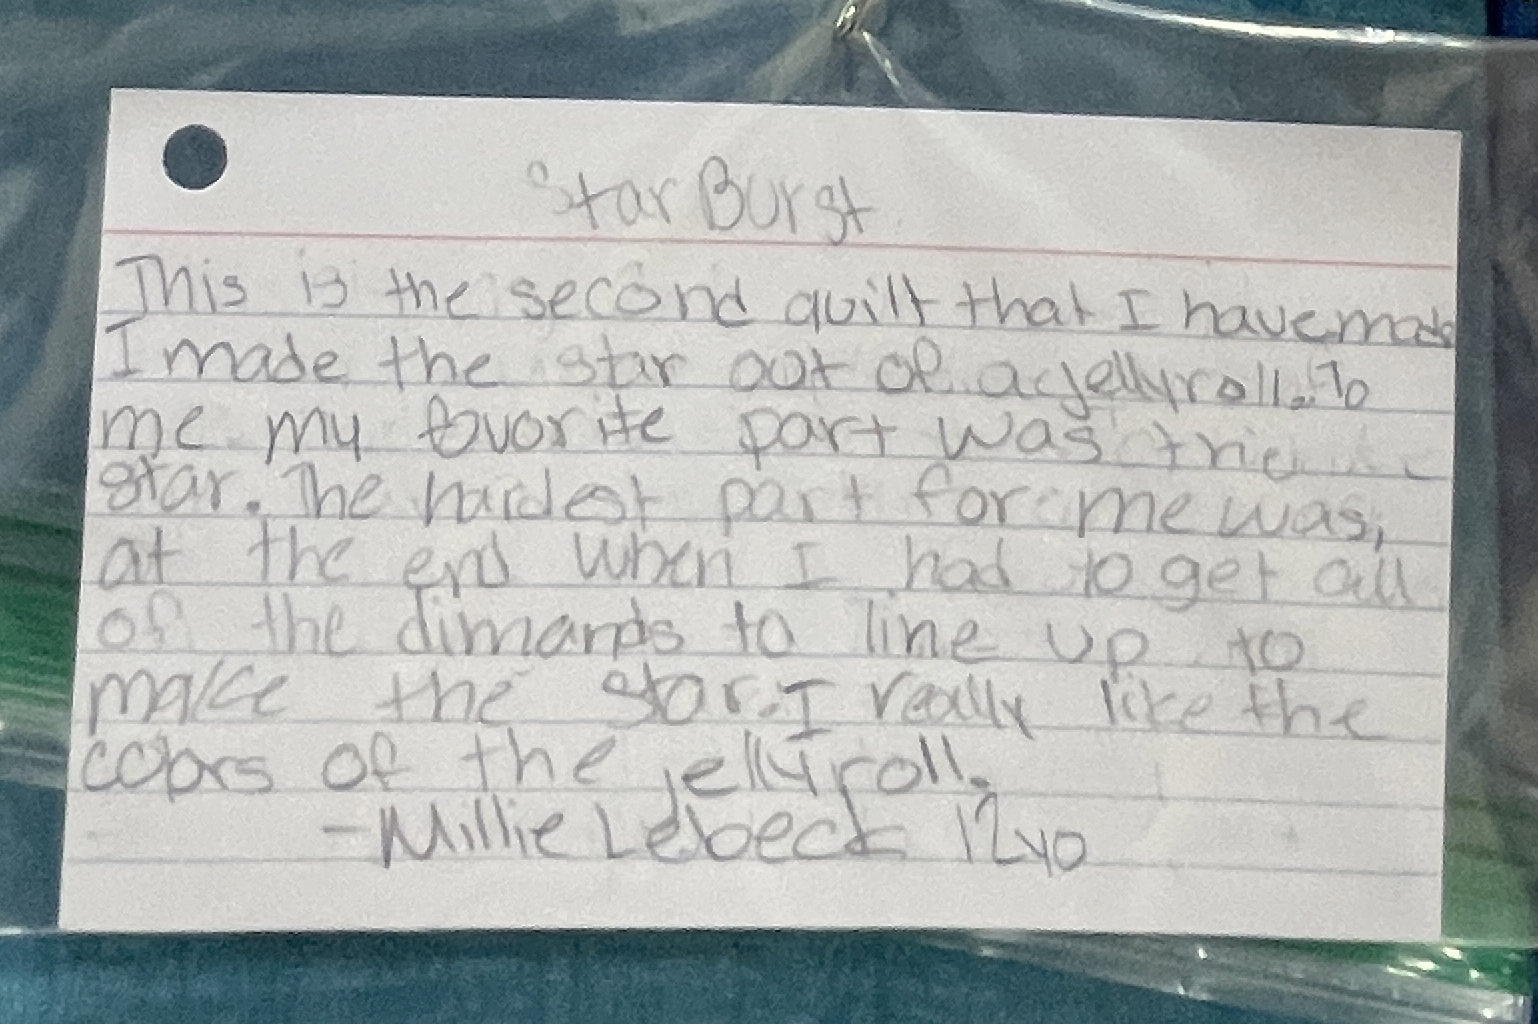 Star Burst
This is the second quilt that I have made
I made the star out of a jellyroll. To
me my favorite part was the
star. The hardest part for me was,
at the end when I had to get all
of the dimands to line up to
make the star. I really like the
colors of the jellyroll.
-Millie Lebeck 12yo